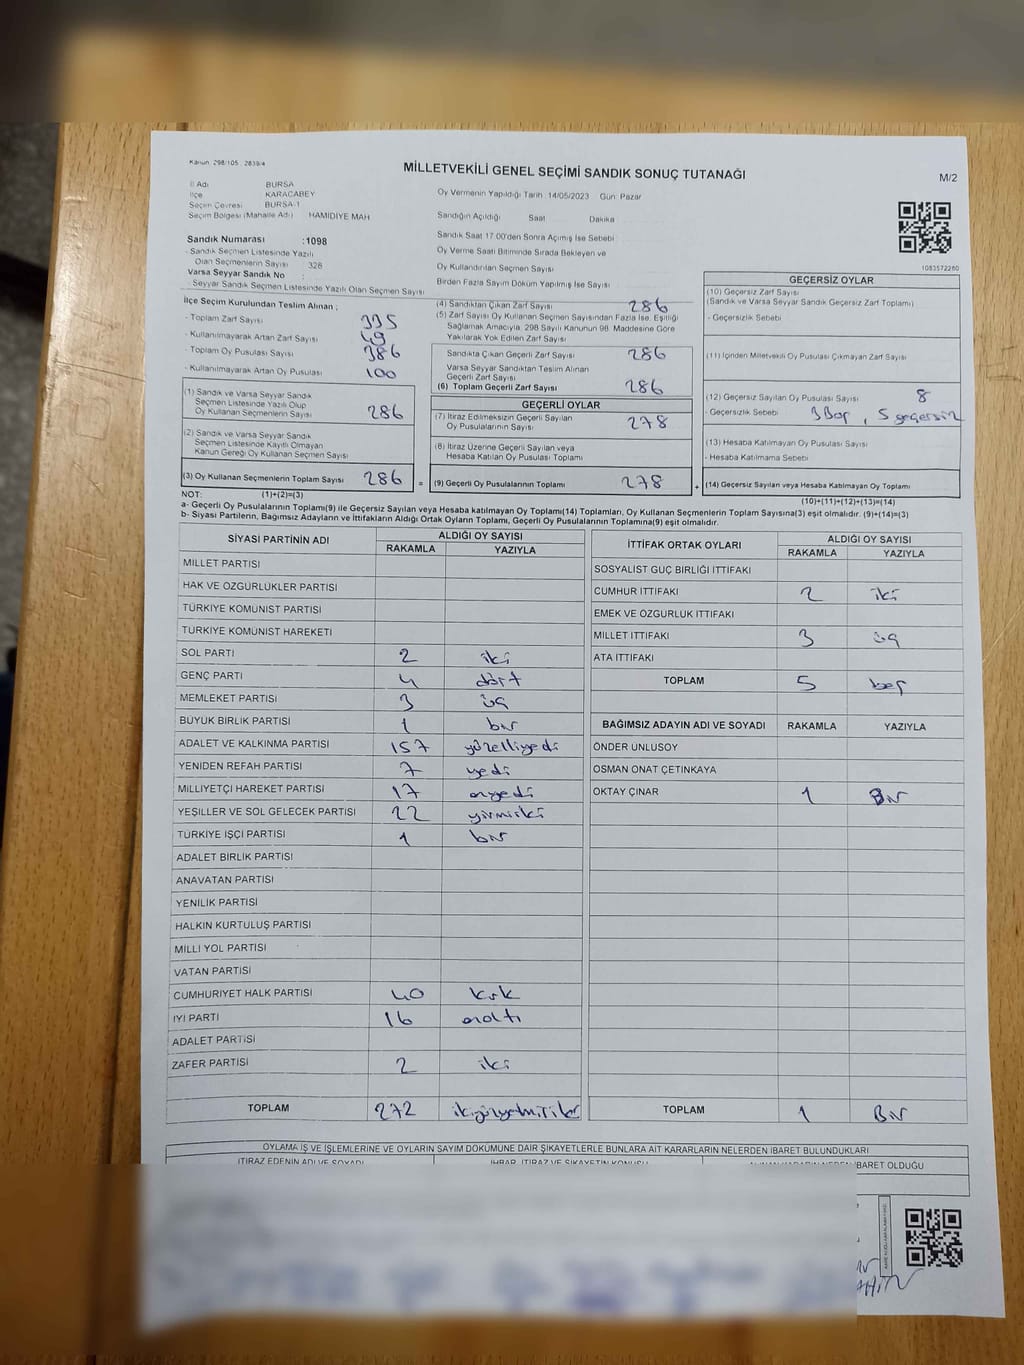 Kanun: 298/105 , 2839/4
MİLLETVEKİLİ GENEL SEÇİMİ SANDIK SONUÇ TUTANAĞI
M/2
İl Adı BURSA
İlçe KARACABEY
Seçim Çevresi BURSA-1
Seçim Bölgesi (Mahalle Adı) HAMİDİYE MAH
Oy Vermenin Yapıldığı Tarih: 14/05/2023 Gün: Pazar
Sandığın Açıldığı Saat Dakika
Sandık Saat 17.00'den Sonra Açımış İse Sebebi
Oy Verme Saati Bitiminde Sırada Bekleyen ve
Oy Kullandırılan Seçmen Sayısı
Birden Fazla Sayım Döküm Yapılmış İse Sayısı
1083572260
Sandık Numarası :1098
- Sandık Seçmen Listesinde Yazılı
Olan Seçmenlerin Sayısı : 328
Varsa Seyyar Sandık No :
- Seyyar Sandık Seçmen Listesinde Yazılı Olan Seçmen Sayısı
İlçe Seçim Kurulundan Teslim Alınan ;
- Toplam Zarf Sayısı 335
- Kullanılmayarak Artan Zarf Sayısı 49
- Toplam Oy Pusulası Sayısı 386
- Kullanılmayarak Artan Oy Pusulası 100
(1) Sandık ve Varsa Seyyar Sandık
Seçmen Listesinde Yazılı Olup
Oy Kullanan Seçmenlerin Sayısı 286
(2) Sandık ve Varsa Seyyar Sandık
Seçmen Listesinde Kayıtlı Olmayan
Kanun Gereği Oy Kullanan Seçmen Sayısı
(3) Oy Kullanan Seçmenlerin Toplam Sayısı 286 =
(4) Sandıktan Çıkan Zarf Sayısı 286
(5) Zarf Sayısı Oy Kullanan Seçmen Sayısından Fazla İse, Eşitliği
Sağlamak Amacıyla, 298 Sayılı Kanunun 98. Maddesine Göre
Yakılarak Yok Edilen Zarf Sayısı
Sandıkta Çıkan Geçerli Zarf Sayısı 286
Varsa Seyyar Sandıktan Teslim Alınan
Geçerli Zarf Sayısı
(6) Toplam Geçerli Zarf Sayısı 286
GEÇERLİ OYLAR
(7) İtiraz Edilmeksizin Geçerli Sayılan
Oy Pusulalarının Sayısı 278
(8) İtiraz Üzerine Geçerli Sayılan veya
Hesaba Katılan Oy Pusulası Toplamı
(9) Geçerli Oy Pusulalarının Toplamı 278 +
GEÇERSİZ OYLAR
(10) Geçersiz Zarf Sayısı
(Sandık ve Varsa Seyyar Sandık Geçersiz Zarf Toplamı)
- Geçersizlik Sebebi
(11) İçinden Milletvekili Oy Pusulası Çıkmayan Zarf Sayısı
(12) Geçersiz Sayılan Oy Pusulası Sayısı 8
- Geçersizlik Sebebi 3 Boş , 5 geçersiz
(13) Hesaba Katılmayan Oy Pusulası Sayısı
- Hesaba Katılmama Sebebi
(14) Geçersiz Sayılan veya Hesaba Katılmayan Oy Toplamı
NOT: (1)+(2)=(3)
(10)+(11)+(12)+(13)=(14)
a- Geçerli Oy Pusulalarının Toplamı(9) ile Geçersiz Sayılan veya Hesaba katılmayan Oy Toplamı(14) Toplamları, Oy Kullanan Seçmenlerin Toplam Sayısına(3) eşit olmalıdır. (9)+(14)=(3)
b- Siyasi Partilerin, Bağımsız Adayların ve İttifakların Aldığı Ortak Oyların Toplamı, Geçerli Oy Pusulalarının Toplamına(9) eşit olmalıdır.
SİYASİ PARTİNİN ADI ALDIĞI OY SAYISI
RAKAMLA YAZIYLA
MİLLET PARTİSİ
HAK VE ÖZGÜRLÜKLER PARTİSİ
TÜRKİYE KOMÜNİST PARTİSİ
TÜRKİYE KOMÜNİST HAREKETİ
SOL PARTİ 2 iki
GENÇ PARTİ 4 dört
MEMLEKET PARTİSİ 3 üç
BÜYÜK BİRLİK PARTİSİ 1 bir
ADALET VE KALKINMA PARTİSİ 157 yüzelliyedi
YENİDEN REFAH PARTİSİ 7 yedi
MİLLİYETÇİ HAREKET PARTİSİ 17 onyedi
YEŞİLLER VE SOL GELECEK PARTİSİ 22 yirmiiki
TÜRKİYE İŞÇİ PARTİSİ 1 bir
ADALET BİRLİK PARTİSİ
ANAVATAN PARTİSİ
YENİLİK PARTİSİ
HALKIN KURTULUŞ PARTİSİ
MİLLİ YOL PARTİSİ
VATAN PARTİSİ
CUMHURİYET HALK PARTİSİ 40 kırk
İYİ PARTİ 16 onaltı
ADALET PARTİSİ
ZAFER PARTİSİ 2 iki
TOPLAM 272 ikiyüzyetmişiki
İTTİFAK ORTAK OYLARI ALDIĞI OY SAYISI
RAKAMLA YAZIYLA
SOSYALİST GÜÇ BİRLİĞİ İTTİFAKI
CUMHUR İTTİFAKI 2 iki
EMEK VE ÖZGÜRLÜK İTTİFAKI
MİLLET İTTİFAKI 3 üç
ATA İTTİFAKI
TOPLAM 5 beş
BAĞIMSIZ ADAYIN ADI VE SOYADI RAKAMLA YAZIYLA
ÖNDER ÜNLÜSOY
OSMAN ONAT ÇETİNKAYA
OKTAY ÇINAR 1 Bir
TOPLAM 1 Bir
OYLAMA İŞ VE İŞLEMLERİNE VE OYLARIN SAYIM DÖKÜMÜNE DAİR ŞİKAYETLERLE BUNLARA AİT KARARLARIN NELERDEN İBARET BULUNDUKLARI
İTİRAZ EDENİN ADI VE SOYADI İHBAR, İTİRAZ VE ŞİKAYETİN KONUSU İBARET OLDUĞU